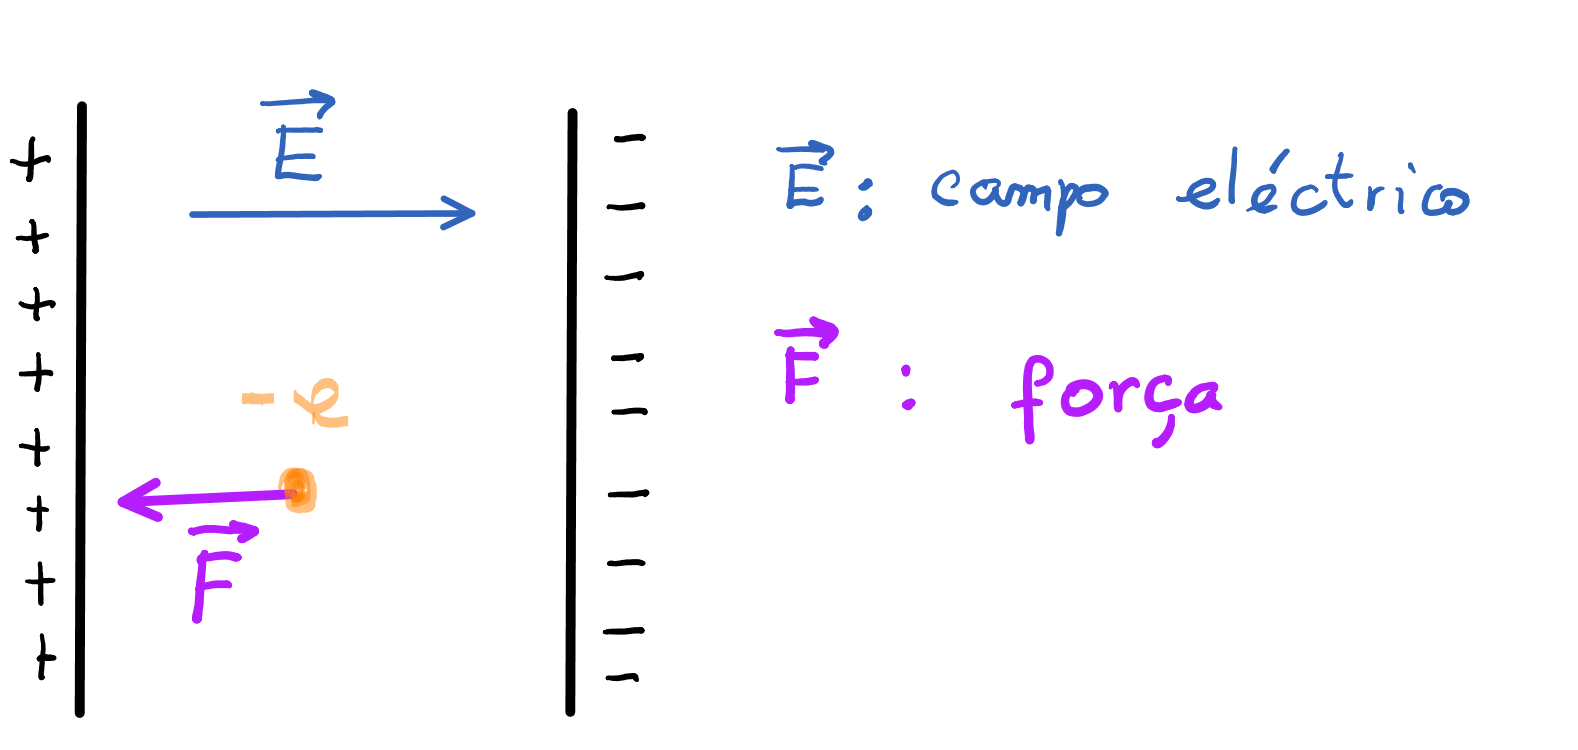 E
E : campo eléctrico
F : força
-e
F
+ + + + + + + +
- - - - - - - - -